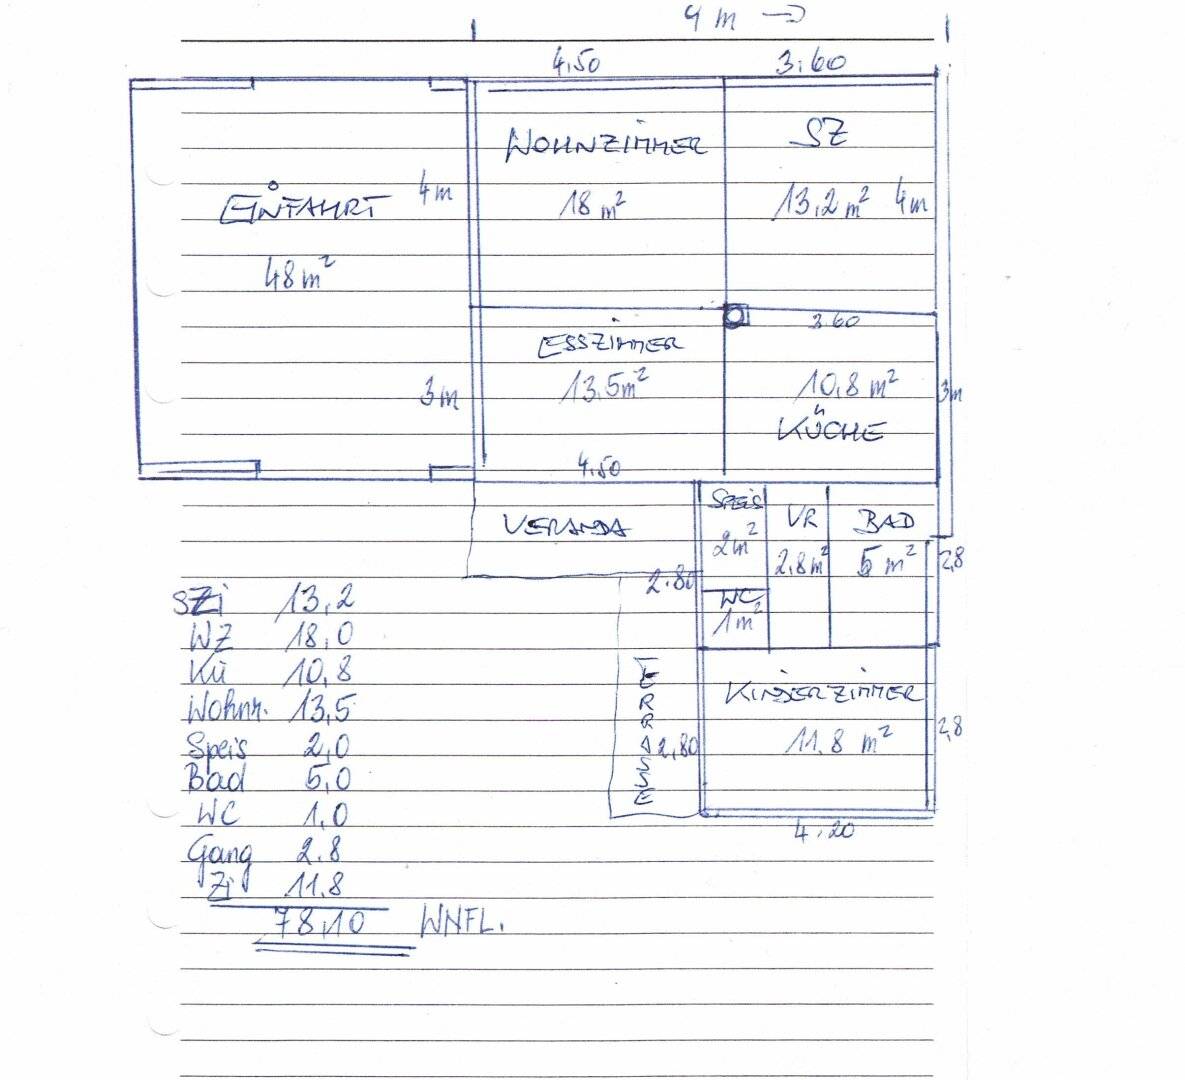 4 m →
4,50 3,60
WOHNZIMMER SZ
18 m² 13,2 m² 4m
EINFAHRT 4m
48 m²
3,60
ESSZIMMER
13,5m² 10,8 m²
KÜCHE
3m 3m
4,50
VERANDA SPEIS VR BAD
2m² 2,8m² 5 m² 2,8
2.80 WC
1m²
TERRASSE KINDERZIMMER
2,80 11,8 m² 2,8
4,20
SZi 13,2
WZ 18,0
Kü 10,8
Wohnr. 13,5
Speis 2,0
Bad 5,0
WC 1,0
Gang 2.8
Zi 11,8
78,10 WNFL.